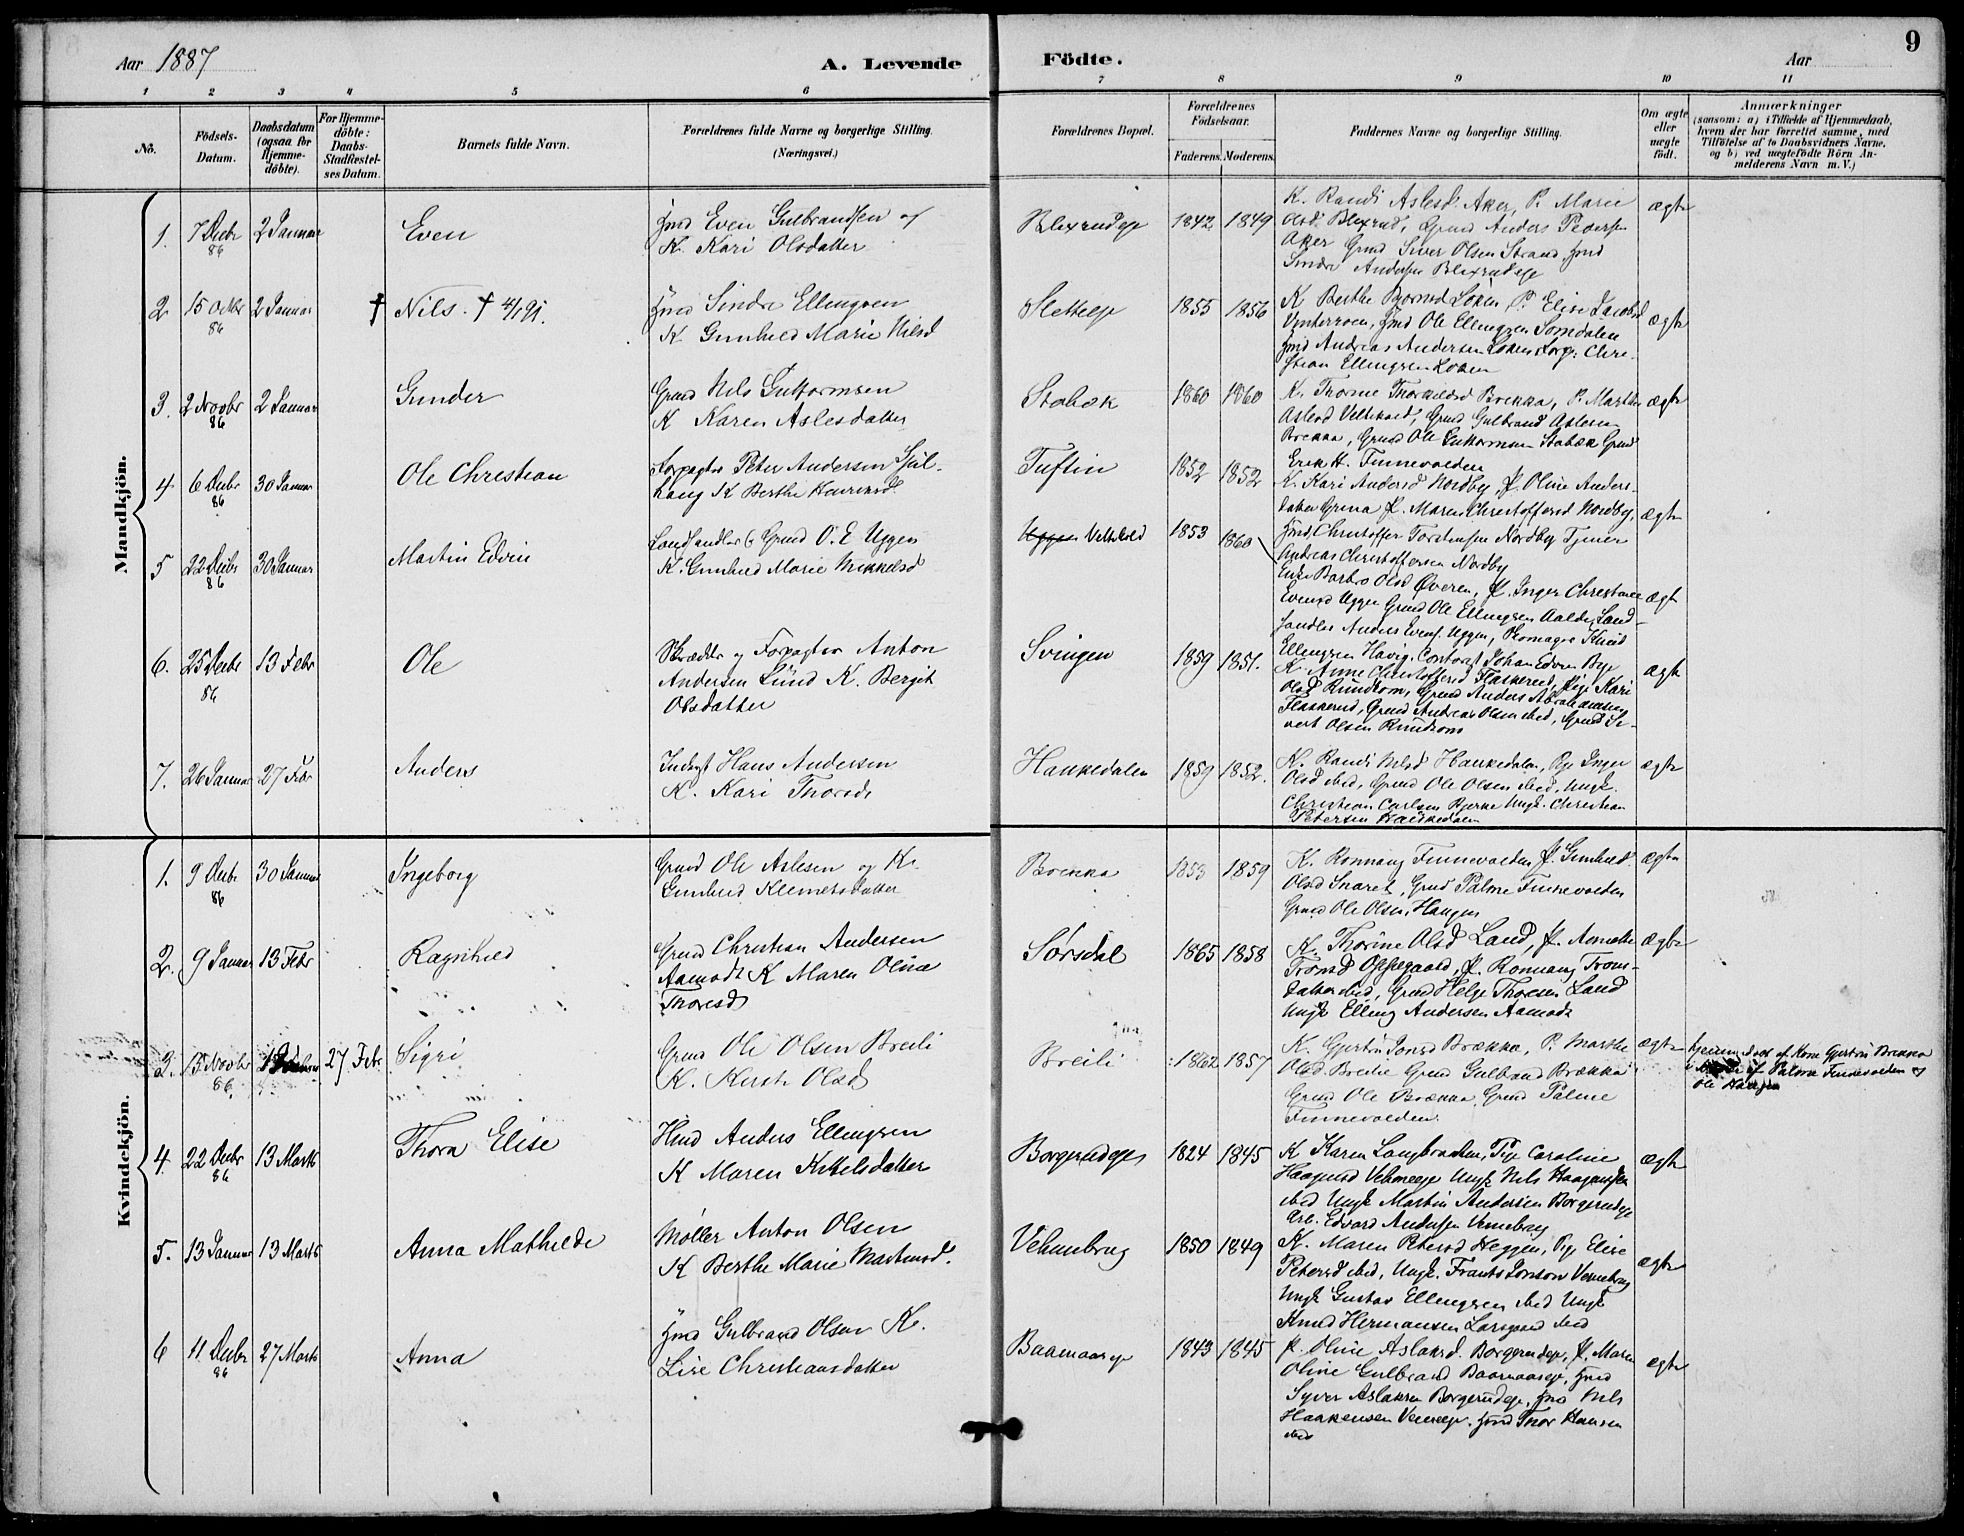 9
Aar 1887
A. Levende
Födte.
Aar
1 2 3 4 5 6 7 8 9 10 11
No.
Födsels-Datum.
Daabsdatum (ogsaa for Hjemmedöbte).
For Hjemmedöbte: Daabs-Stadfæstelses Datum.
Barnets fulde Navn.
Forældrenes fulde Navne og borgerlige Stilling. (Næringsvei.)
Forældrenes Bopæl.
Forældrenes Födselsaar.
Faderens. Moderens.
Faddernes Navne og borgerlige Stilling.
Om ægte eller uægte födt.
Anmærkninger
(saasom: a) i Tilfælde af Hjemmedaab, hvem der har forrettet samme, med Tilföielse af to Daabsvidners Navne, og b) ved uægtefödte Börn Anmelderens Navn m. V.)
Mandkjön.
1. 7 Decbr 86 2 Januar Even
Even Gulbrandsen og
K. Kari Olsdatter
Blexrudeje 1842 1849
K. Randi Aslesd. Aker, P. Marie
Olsd. Blexrud, Grmd Anders Pedersen
Aker Grmd Siver Olsen Strand
Sindre Andersen Blexrudeje
ægte
2 15 Octbr 86 2 Januar † Nils. † 4/1 91.
Sindre Ellingsen
K. Gunhild Marie Nilsd
Sletteeje 1855 1856
K. Berthe Bjørnsd Løken P. Elise Jacobsd
Ole Ellingsen Tomdalen
Andreas Andersen Løken Forp. Chri-
stian Ellingsen Løken
ægte
3. 2 Novbr 86 2 Januar Gunder
Grmd Nils Guttormsen
K Karen Aslesdatter
Stabæk 1860 1860
K. Thorine Thorkildsd Brekka, P. Marthe
Aslesd Veltekved, Grmd Gulbrand Aslesen
Brekka, Grmd Ole Guttormsen Stabæk Grmd
Erik H. Finnevolden
ægte
4 6 Decbr 86 30 Januar Ole Christian
Forpagter Peter Andersen
haug K Berthe
Tuftin 1852 1852
K. Kari Andersd Nordby, P. Oline Anders-
datter P. Maren Christoffersd Nordby,
Christoffer Torstensen Nordby Tjener
Andreas Christoffersen Nordby
ægte
5 22 Decbr 86 30 Januar Martin Edvin
Landhandler & Grmd O. E Uggen
K. Gunhild Marie Mikkelsd
Uggen Veltekved 1853 1860
Enke Barbro Olsd Øveren, P. Inger Christiane
Evensd Uggen Grmd Ole Ellingsen Land-
handler Anders Evens. Uggen,
Ellingsen Contorist Johan Edvin Bye
ægte
6. 25 Decbr 86 13 Febr Ole
Skrædder og Forpagter Anton
Andersen Lund K. Bergit
Olsdatter
Svingen 1859 1851.
K. Anne Christoffersd Flaskerud, Pige Kari
Olsd Rundtom, Grmd Anders Abrahamsen
Flaskerud, Grmd Andreas Olsen ibid, Grmd Si-
vert Olsen Rundtom
ægte
7. 26 Januar 27 Febr Anders
Inderst Hans Andersen
K. Kari Thoresd
Haukedalen 1859 1852.
K. Randi Nilsd Haukedalen, Pige Inger
Olsd ibid, Grmd Ole Olsen ibid, Ungk.
Christian Carlsen Bjerke Ungk. Christian
Petersen Haukedalen
ægte
Kvindekjön.
1. 9 Decbr 86 30 Januar Ingeborg
Grmd Ole Aslesen og K.
Gunhild Klemetsdatter
Brekka 1853 1859
K. Ronnaug Finnevolden P. Gunhild
Olsd Snaret, Grmd Palme Finnevolden
Grmd Ole Olsen Haugen
ægte
2. 9 Januar 13 Febr Ragnhild
Grmd Christian Andersen
Aamodt K Maren Olina
Thoresd
Sørsdal 1865 1858
K. Thorine Olsd Land, P. Annette
Tronsd Oppegaard, P. Ronnaug Trons-
datter ibid, Grmd Helge Thoresen Land
Ungk Elling Andersen Aamodt
ægte
3. 15 Novbr 86 27 Febr Sigri
Grmd Ole Olsen Breili
K. Kirsti Olsd
Breili 1862 1857
K. Gjertru Jonsd Brækka, P. Marthe
Olsd Breilie Grmd Gulbrand Brækka
Grmd Ole Brækka Grmd Palme
Finnevolden.
ægte
hjemmedøbt af Kone Gjertru Brekka
af Palme Finnevolden og
Ole Haugen
4. 22 Decbr 86 13 Marts Thora Elise
Hmd Anders Ellingsen
K Maren Kittelsdatter
Borgerudeje 1824 1845
K Karen Langbraaten, Pige Caroline
Haagensd Vehmeeje Ungk Nils Haagensen
ibid Ungk Martin Andersen Borgerudeje
Arb. Edvard Andersen Vemebrug
ægte
5. 13 Januar 13 Marts Anna Mathilde
Møller Anton Olsen
K Berthe Marie Martinsd.
Vehmebrug 1850 1849
K. Maren Petersd Heggen, Pige Elise
Petersd ibid, Ungk. Frants Jonson Vemebrug
Ungk Gustav Ellingsen ibid Ungk
Knud Hermansen Larsgaard ibid
ægte
6 11 Decbr 86 27 Marts Anna
Gulbrand Olsen K.
Lise Christiansdatter
Baamaaseje 1843 1845
P. Oline Aslaksd. Borgerudeje, P. Maren
Oline Gulbrand Baamaaseje,
Syver Aslaksen Borgerudeje, Nils
Haakensen Vemeeje, Thor Hansen
ibid
ægte